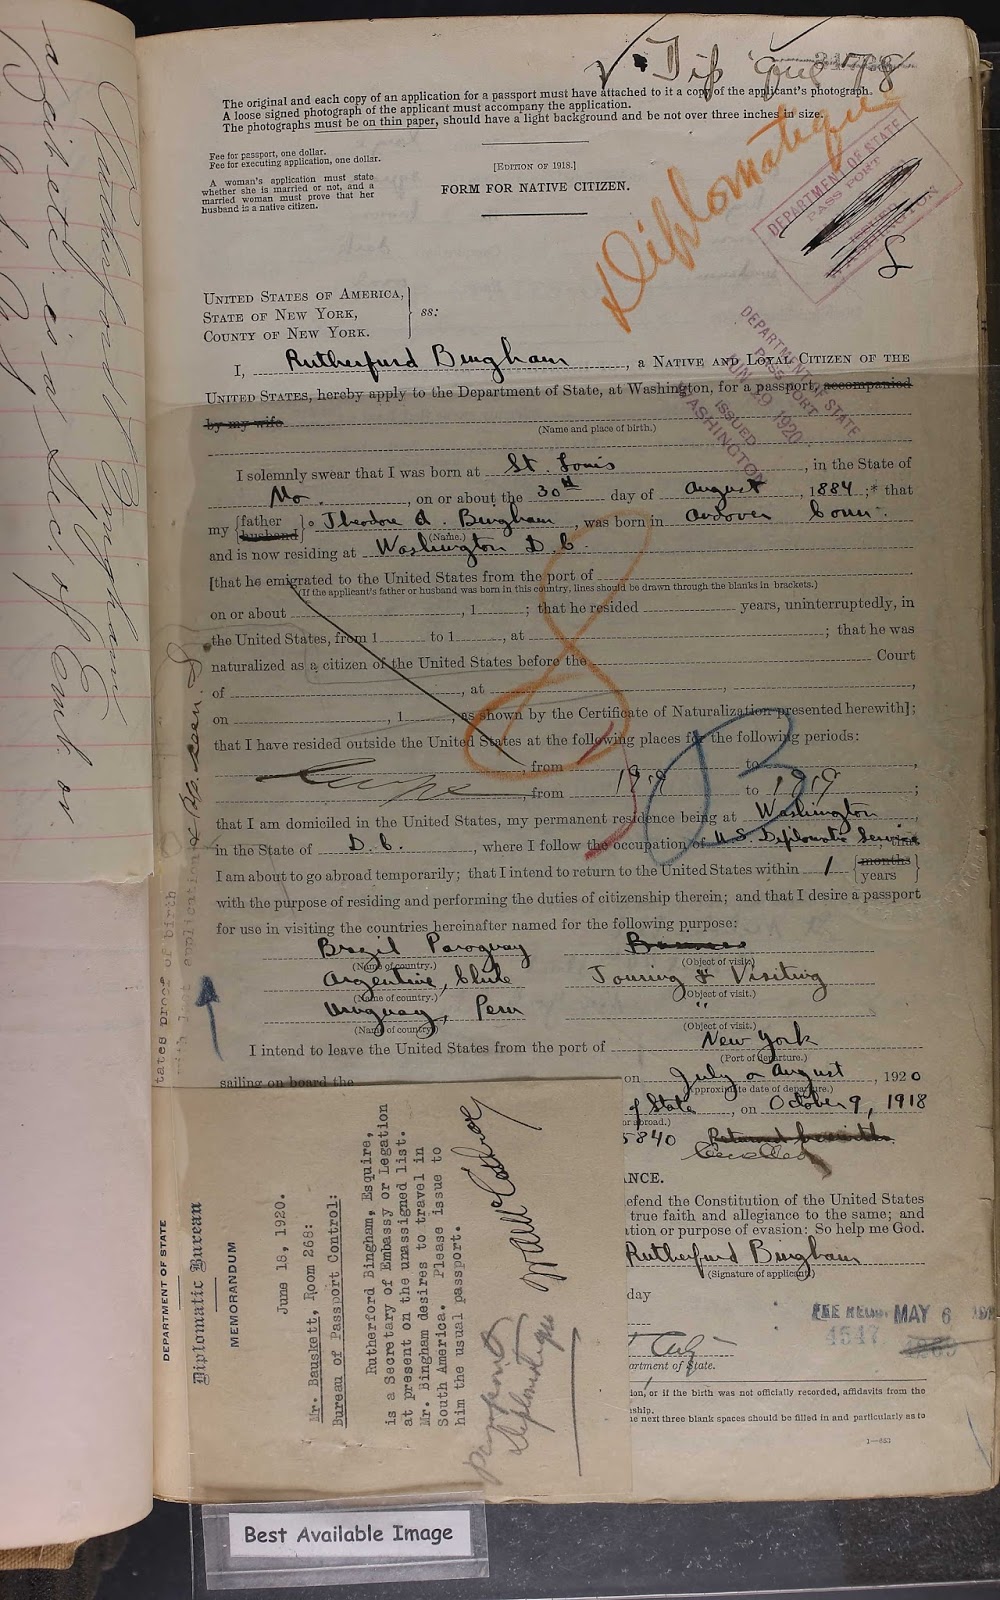 Dip
The original and each copy of an application for a passport must have attached to it a copy of the applicant's photograph.
A loose signed photograph of the applicant must accompany the application.
The photographs must be on thin paper, should have a light background and be not over three inches in size.
Diplomatique
Fee for passport, one dollar.
Fee for executing application, one dollar.
A woman's application must state
whether she is married or not, and a
married woman must prove that her
husband is a native citizen.
[EDITION OF 1918.]
FORM FOR NATIVE CITIZEN.
DEPARTMENT OF STATE
PASSPORT
ISSUED
WASHINGTON
UNITED STATES OF AMERICA,
STATE OF NEW YORK,
COUNTY OF NEW YORK.
ss:
DEPARTMENT OF STATE
PASSPORT
JUN 29 1920
ISSUED
WASHINGTON
I, Rutherfurd Bingham, a NATIVE AND LOYAL CITIZEN OF THE
UNITED STATES, hereby apply to the Department of State, at Washington, for a passport, accompanied
by my wife
(Name and place of birth.)
I solemnly swear that I was born at St. Louis, in the State of
Mo., on or about the 30th day of August, 1884;* that
my {father husband} Theodore A. Bingham, was born in Andover Conn.
(Name.)
and is now residing at Washington D.C.
[that he emigrated to the United States from the port of
(If the applicant's father or husband was born in this country, lines should be drawn through the blanks in brackets.)
on or about , 1 ; that he resided years, uninterruptedly, in
the United States, from 1 to 1 , at ; that he was
naturalized as a citizen of the United States before the Court
of , at , ,
on , 1 , as shown by the Certificate of Naturalization presented herewith];
that I have resided outside the United States at the following places for the following periods:
, from to ,
, from 1919 to 1919;
that I am domiciled in the United States, my permanent residence being at Washington
in the State of D.C., where I follow the occupation of U.S. Diplomatic Service
I am about to go abroad temporarily; that I intend to return to the United States within 1 {months years}
with the purpose of residing and performing the duties of citizenship therein; and that I desire a passport
for use in visiting the countries hereinafter named for the following purpose:
Brazil Paraguay Business
(Name of country.) (Object of visit.)
Argentine, Chile Touring & Visiting
(Name of country.) (Object of visit.)
Uruguay, Peru "
(Name of country.) (Object of visit.)
I intend to leave the United States from the port of New York
(Port of departure.)
sailing on board the on July or August, 1920
(Approximate date of departure.)
of State, on October 9, 1918
or abroad.)
5840 Returned herewith
Cancelled
ANCE.
efend the Constitution of the United States
true faith and allegiance to the same; and
tion or purpose of evasion: So help me God.
Rutherfurd Bingham
(Signature of applicant.)
day
FEE RECD. MAY 6
4547
artment of State.
ion, or if the birth was not officially recorded, affidavits from the
ship.
he next three blank spaces should be filled in and particularly as to
1—683
DEPARTMENT OF STATE
Diplomatic Bureau
MEMORANDUM
June 18, 1920.
Mr. Bauskett, Room 268:
Bureau of Passport Control:
Rutherford Bingham, Esquire,
is a Secretary of Embassy or Legation
at present on the unassigned list.
Mr. Bingham desires to travel in
South America. Please issue to
him the usual passport.
Passport
Diplomatique
tates proof of birth
with last application
seen.
Rutherfurd Bingham
is a Sec. of Emb. or
Best Available Image